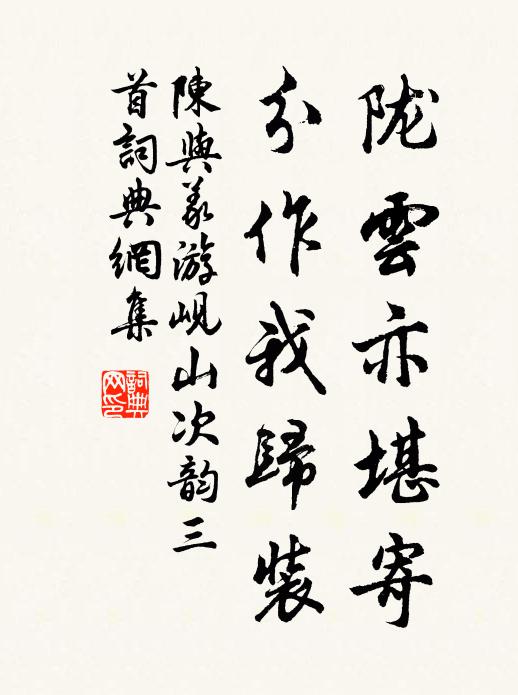 陇雲亦堪寄
分作我歸裝
陳與義游峴山次韵三
首詞典網集
詞典网印